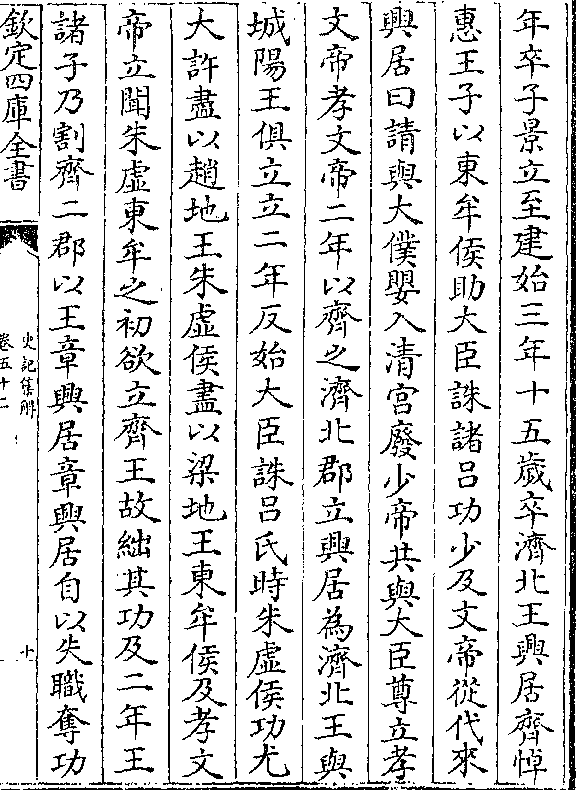 年卒子景立至建始三年十五歲卒濟北王興居齊悼
惠王子以東牟侯助大臣誅諸呂功少及文帝從代來
興居曰請與大僕嬰入清宮廢少帝共與大臣尊立孝
文帝孝文帝二年以齊之濟北郡立興居為濟北王與
城陽王俱立立二年反始大臣誅呂氏時朱虛侯功尤
大許盡以趙地王朱虛侯盡以梁地王東牟侯及孝文
帝立聞朱虛東牟之初欲立齊王故絀其功及二年王
諸子乃割齊二郡以王章興居章興居自以失職奪功
欽定四庫全書
史記集解
卷五十二
十